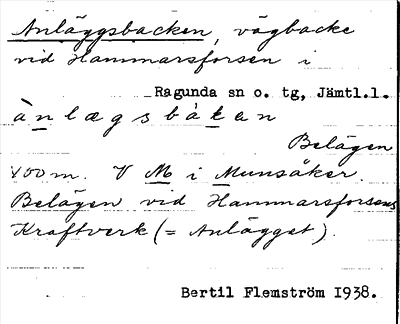 Anläggsbacken, vägbacke
vid Hammarsforsen i
Ragunda sn o. tg, Jämtl.l.
ànlægsbàkan
Belägen
400 m. V M i Munsåker.
Belägen vid Hammarsforsens
Kraftverk (= Anlägget).
Bertil Flemström 1938.